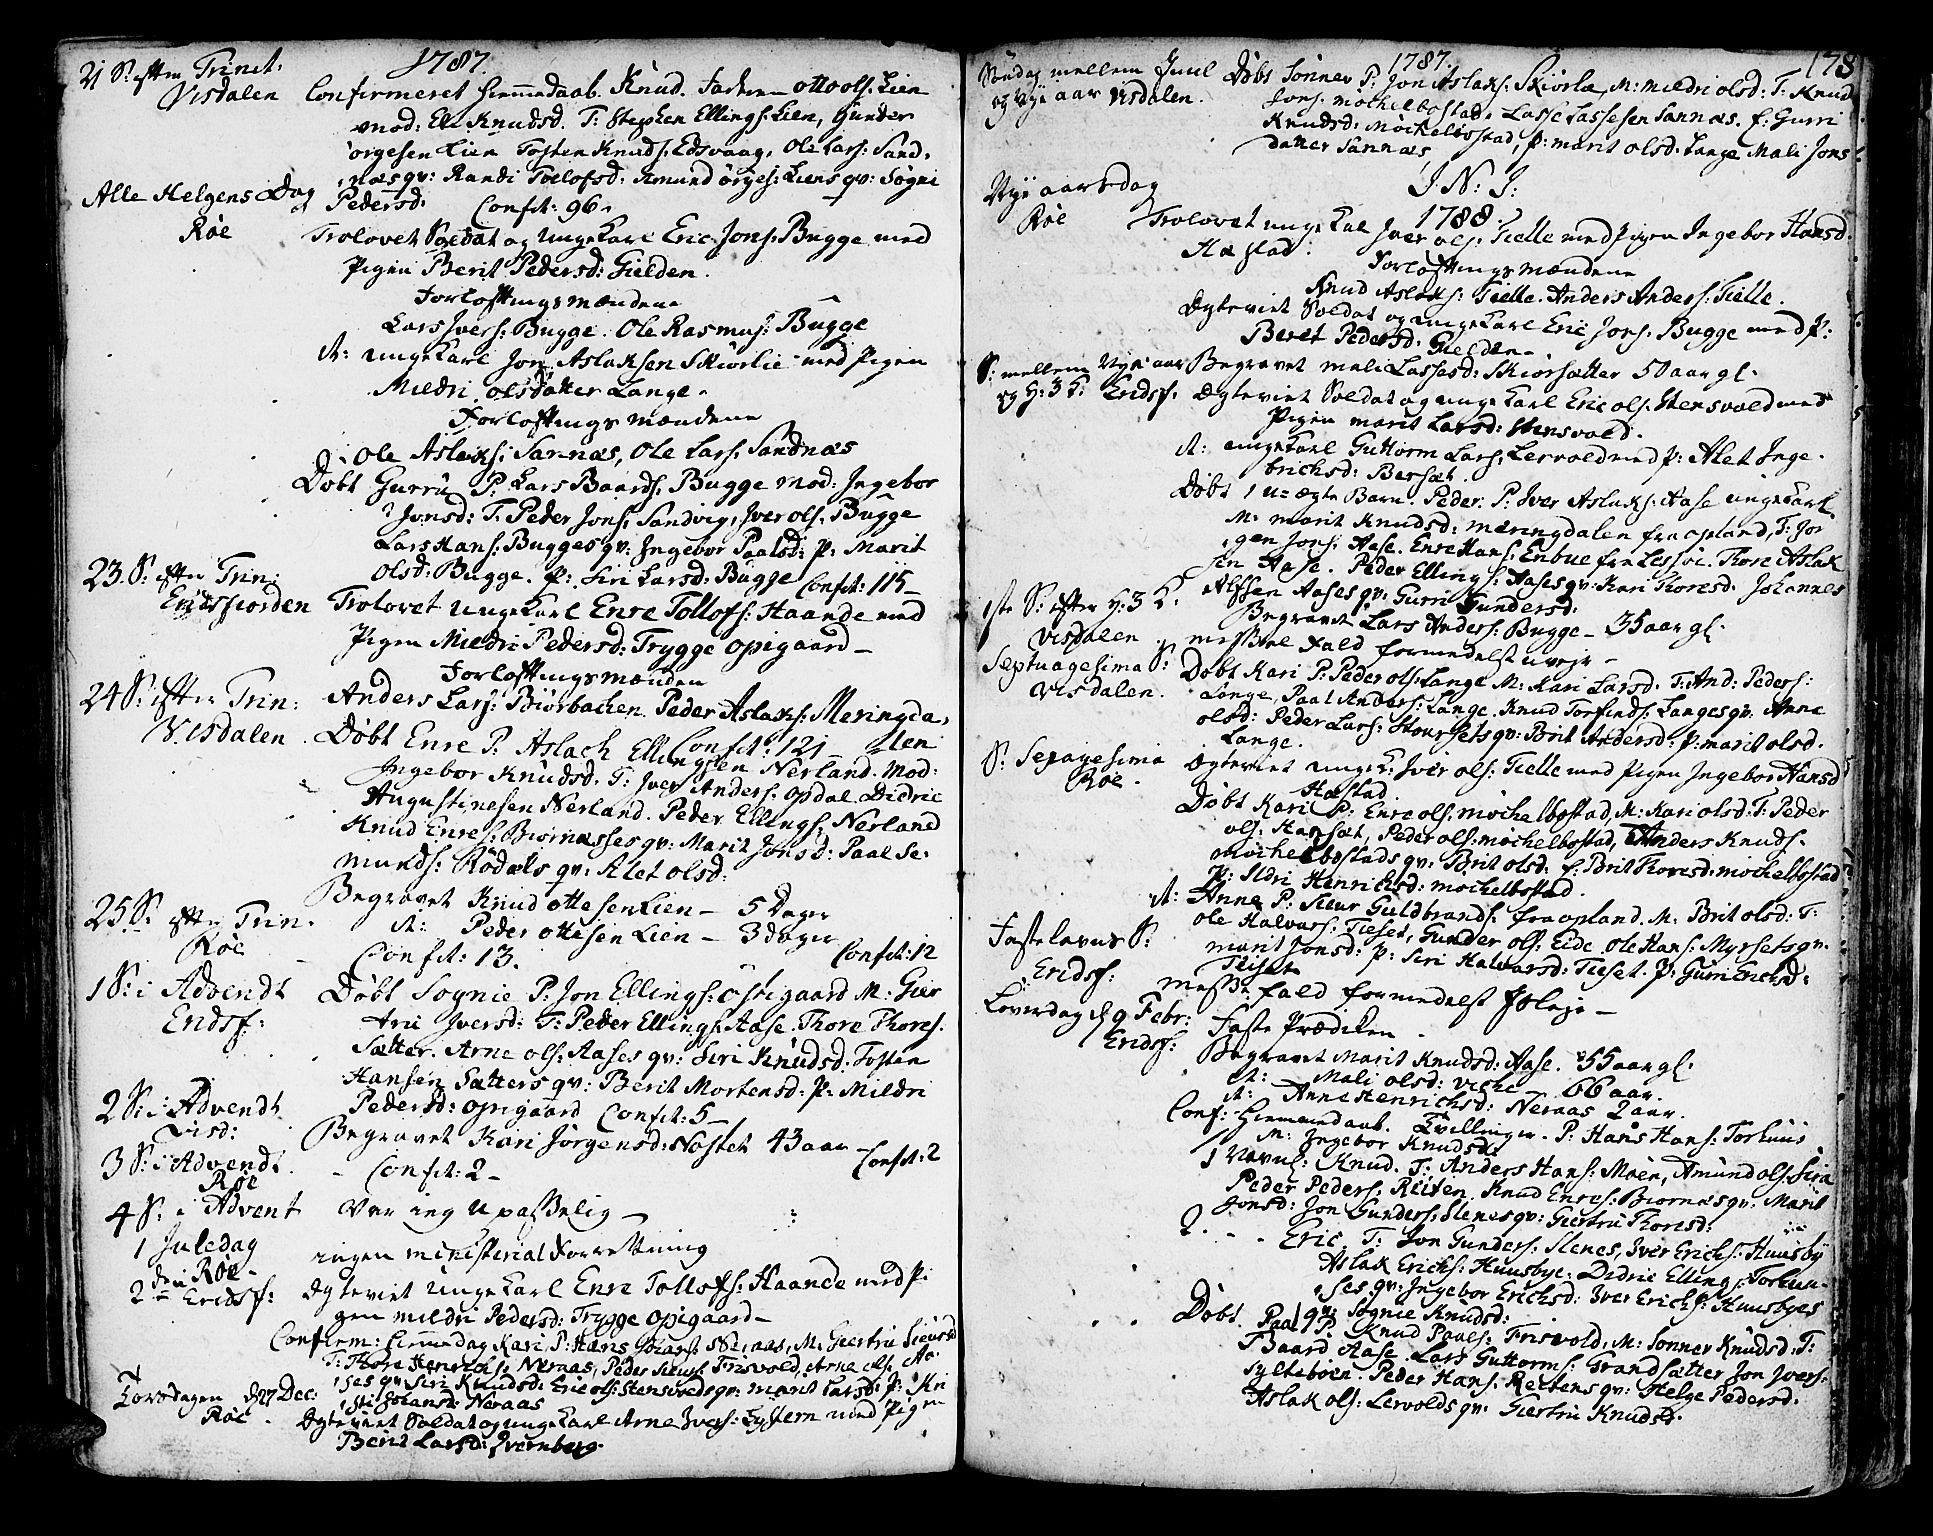 1787.
21 S: efter Trinit: Visdalen
Confirmeret hiemmedaab. Knud. Faderen Otto ols: Lien
mod: Eli Knudsd. T: Stephen Ellings: Lien, Gunder
Ørgesen Lien Tosten Knuds: Edsvaag, Ole Lars: Sand,
næs qv: Randi Tollofsd: Amund Ørges: Liens qv: Sogni
Pedersd: Confit: 96.
Alle Helgens Dag Røe
Trolovet Soldat og ungekarl Eric Jons: Bugge med
Pigen Berit Pedersd: Gielden.
Forloftningsmændene
Lars Ivers: Bugge. Ole Rasmus: Bugge
it: ungekarl Jon Aslaksen Skiorlie med Pigen
Mildri olsdatter Lange.
Forloftnings mændene
Ole Aslaks: Sannæs, Ole Lars: Sandnæs
Døbt Gurru P: Lars Baards: Bugge mod: Ingebor
Jonsd: T: Peder Jons: Sandvig, Iver ols: Bugge
Lars Hans: Bugges qv: Ingebor Paalsd: p: Marit
olsd: Bugge. p: Siri Larsd: Bugge Confit: 115
23. S: efter Trin: Eridsfiorden
Trolovet ungekarl Enre Tollofs: Haande med
Pigen Mildri Pedersd: Trygge opigaard
Forloftningsmænden
24 S: efter Trin: Visdalen
Anders Lars: Biørbachen. Peder Aslaks: Meringda,
len
Confit: 121
Døbt Enre P: Aslach Ellingsen Nerland. Mod:
Ingebor Knudsd. T: Iver Anders: opdal Didric
Augustinesen Nerland. Peder Ellings: Nerland
Knud Enres: Biørnæsses qv: Marit Jonsd: Paal Se,
munds: Rødals qv: Alet olsd:
25 S: efter Trin. Røe
Begravet Knud ottesen Lien 5 Dager
it: Peder ottesen Lien 3 dager
Confit: 13. Confit: 12
1 S: i Advendt Eridsf:
Døbt Sognie P: Jon Ellings: Østigaard M: Gier
Arni Iversd: T: Peder Ellings: Aase. Thore Thores:
Sætter. Arne ols: Aases qv: Siri Knudsd: Tosten
Hansen Sætters qv: Berit Mortensd: p: Mildri
Pedersd: opigaard Confit: 5
2 S: i Advendt Visd:
Begravet Kari Jørgensd: Nostet 43 aar Confit: 2
3 S: i Advendt. Røe
Confit: 2
4 S: i Advent
Var ieg upaßelig
1 Juledag Røe
ingen ministerial Forretning
2den Eridsf:
Ægteviet ungekarl Enre Tollofs: Haande med Pi
gen mildri Pedersd: Trygge opigaard
Confirm: hiemmedag Kari P: Hans Hans: Neraas, M: Giertru Sieursd
T: Thore Henrichs: Neraas, Peder Sieurs: Frisvold, Arne ols: Aa,
ses qv: Siri Knudsd: Eric ols: Stensvolds qv: marit Larsd: p: Kri
sti Johansd: Neraas
Torsdagen d 27 Dec: Røe
Ægteviet Soldat og ungekarl Arne Ivers: med Pigen
Berit Larsd:
1787. 178
Søndag mellem Juul og Nyeaar Visdalen.
Døbt Sønner P. Jon Aslaks: Skiorlæ, M: mildri olsd: T: Knud
Jons: mochelbostad, Lasse Lassesen Sannæs. f: Gurri
Knudsd: mochelbostad, p: marit olsd: Lange Mali Jons
datter Sannæs
J: N: J:
1788.
Nyeaarsdag Røe
Trolovet ungekarl Iver ols: Tielle med Pigen Ingebor Hansd:
Hæstad.
Forloftningsmændene
Knud Aslaks: Tielle. Anders Anders: Tielle.
Ægteviet Soldat og ungekarl Eric Jons: Bugge med P:
Beret Pedersd. Gielden
S: mellem Nyeaar og H: 3 K: Eridsf.
Begravet mali Lassesd: Skiorsætter 50 aar gl.
Ægteviet Soldat og ungekarl Eric ols: Stensvold med
Pigen marit Larsd: Stensvold.
it: ungekarl Guttorm Lars: Lervold med p: Alet Inge,
brichsd: Bersæt.
Døbt 1 u=ægte Barn. Peder. P: Iver Aslaks: Aase ungekarl
M: marit Knudsd: meringdalen fra opland, T: Jør
gen Jons: Aase. Enre Hans: Enbue fra Lessøe. Thore Aslak
sen Aase. Peder Ellings: Aases qv: Kari Thoresd: Johannes
Alfsen Aases qv: Gurri Gundersd:
Begravet Lars Anders: Bugge 35 aar gl.
1ste S: efter H: 3 K. Visdalen.
messe Fald formedelst uveje
Septuagesima S: Visdalen.
Døbt Kari P: Peder ols: Lange M: Kari Larsd: T: And: Peders:
Lange, Paal Anders: Lange. Knud Torfinds: Langes qv: Anne
olsd: Peder Lars: Stoursets qv: Brit Andersd: p: marit olsd.
Lange.
S: Sexagesima Røe.
Ægteviet ungek: Iver ols: Tielle med Pigen Ingebor Hansd
Hæstad
Døbt Kari P: Enre ols: mochelbostad, M: Kari olsd: T: Peder
ols: Hansæt, Peder ols: mochelbostad, Anders Knuds.
mochelbostads qv: Brit olsd: f: Brit Thoresd: mochelbostad
p: Sldri Henrichsd: mochelbostad.
it: Anne P: Sieur Guldbrands: fra opland. M: Brit olsd: T:
ole Halvars: Tieset, Gunder ols: Eide ole Hans: Myrsets qv:
marit Jonsd: p: Siri Halvarsd: Tieset. p: Gurri Ericsd:
Tiiset
Fastelavns S: Eridsf:
messe fald formedelst Føleje
Løverdag d 9 Febr: Eridsf:
Faste Prædiken
Begravet Marit Knudsd: Aase. 55 aar gl.
it: Mali olsd: 66 aar.
it: Anne Henrichsd: Neraas 2 aar.
Conf: Hiemmedaab. Tvillinger. P: Hans Hans: Torhuus
M: Ingebor Knudsd:
1 Navnl: Knud. T: Anders Hans: Moen, Amund ols: Sira
Peder Peders: Reiten. Knud Enres: Biørnæs qv: Marit
Jonsd: Jon Gunders: Slenes qv: Giertru Thoresd:
2. Eric T: Jon Gunders: Slenes, Iver Erichs: Huusby
Aslak Erichs: Huusbye. Didric Ellings: Torhuu,
ses qv: Ingebor Erichsd: Iver Erichs: Huusbyes
qv: Sognie Knudsd:
Døbt Paal P: Knud Paals: Frisvold, M: Sønner Knudsd: T:
Baard Aase. Lars Guttorms: Grandsætter Jon Ivers:
Syltebøen. Peder Hans: Reitens qv: Helge Pedersd.
Aslak ols: Lervolds qv: Giertru Knudsd.